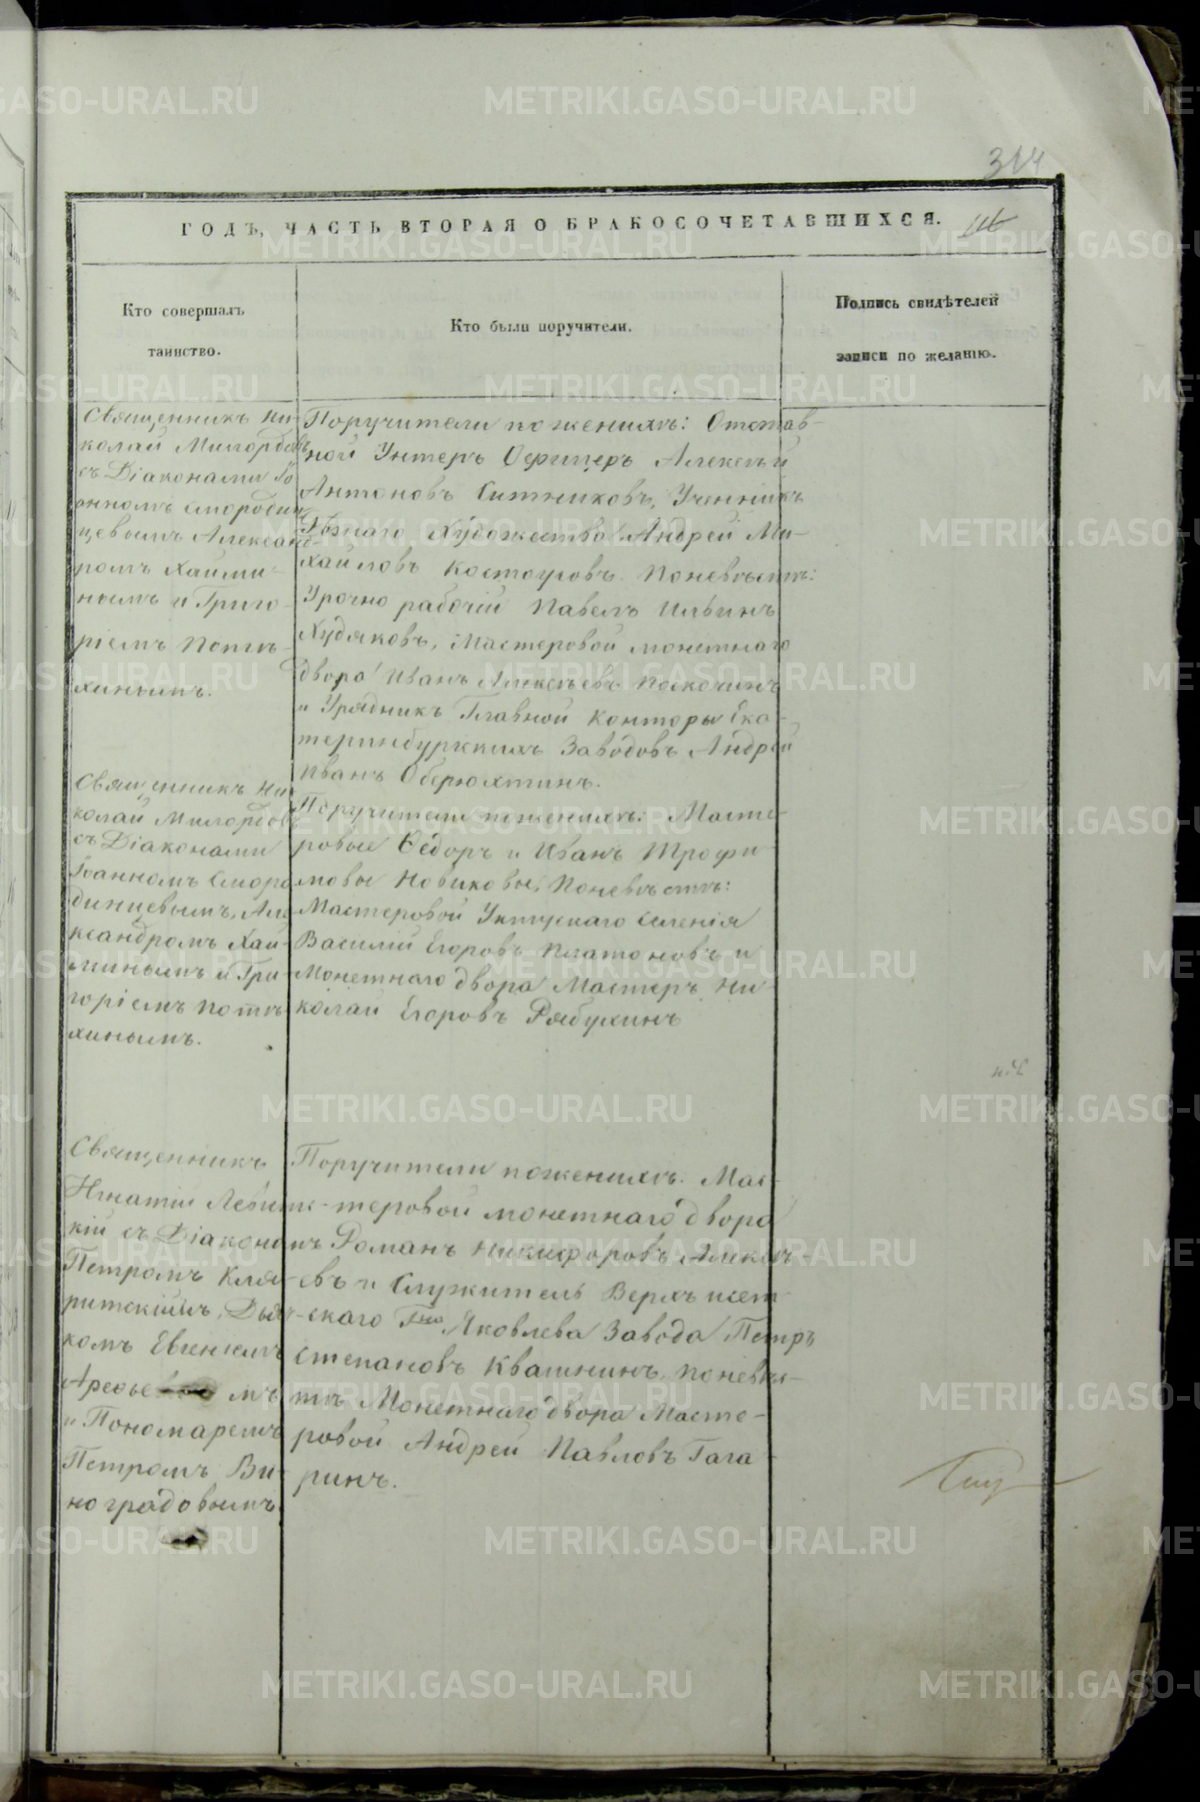 314
ГОДЪ, ЧАСТЬ ВТОРАЯ О БРАКОСОЧЕТАВШИХСЯ.
Кто совершалъ
таинство.
Кто были поручители.
Подпись свидѣтелей
записи по желанію.
Священникъ Ни-
колай Милордовъ
съ Діаконами Іо-
анномъ Смородин
цевымъ Александ-
ромъ Хайми-
нымъ и Григо-
ріемъ Потѣ-
хинымъ.
Поручители по женихѣ: Отстав-
ной Унтеръ Офицеръ Алексѣй
Антоновъ Ситниковъ, Ученикъ
Рѣзнаго Художества Андрей Ми-
хайловъ Костоуровъ. По невѣстѣ:
Урочно рабочій Павелъ Ильинъ
Худяковъ, Мастеровой монетнаго
двора Иванъ Алексѣевъ Поскочинъ
и Урядникъ Главной Конторы Ека-
теринбургскихъ Заводовъ Андрей
Иванъ Оберюхтинъ.
Священникъ Ни
колай Милордов
съ Діаконами
Іоанномъ Сморо
динцевымъ, Але
ксандромъ Хай-
минымъ и Гри-
горіемъ Потѣ
хинымъ.
Поручители по женихѣ: Масте-
ровые Ѳедоръ и Иванъ Трофи
мовы Новиковы, По невѣстѣ:
Мастеровой Уктусскаго селенія
Василій Егоровъ Платоновъ и
Монетнаго двора Мастеръ Ни-
колай Егоровъ Рябухинъ
Священникъ
Игнатій Левит-
кій съ Діакономъ
Петромъ
Дьяч-
комъ Евгеніемъ
Арефье мъ
и Пономаремъ
Петромъ Ви-
ноградовымъ.
Поручители по женихѣ. Мас-
теровой монетнаго двора
Романъ Никифоровъ Алексѣ-
евъ и Служитель Верхъ исет
скаго Гна Яковлева Завода Петръ
Степановъ Квашнинъ, по невѣс-
тѣ Монетнаго двора Масте-
ровой Андрей Павловъ Гага
ринъ.
METRIKI.GASO-URAL.RU